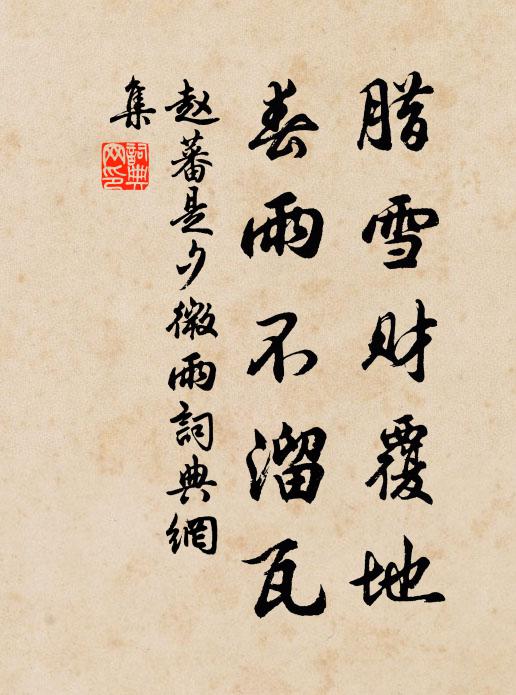 腊雪财覆地
春雨不溜瓦
赵蕃是夕微雨詞典網
集
詞典
网印